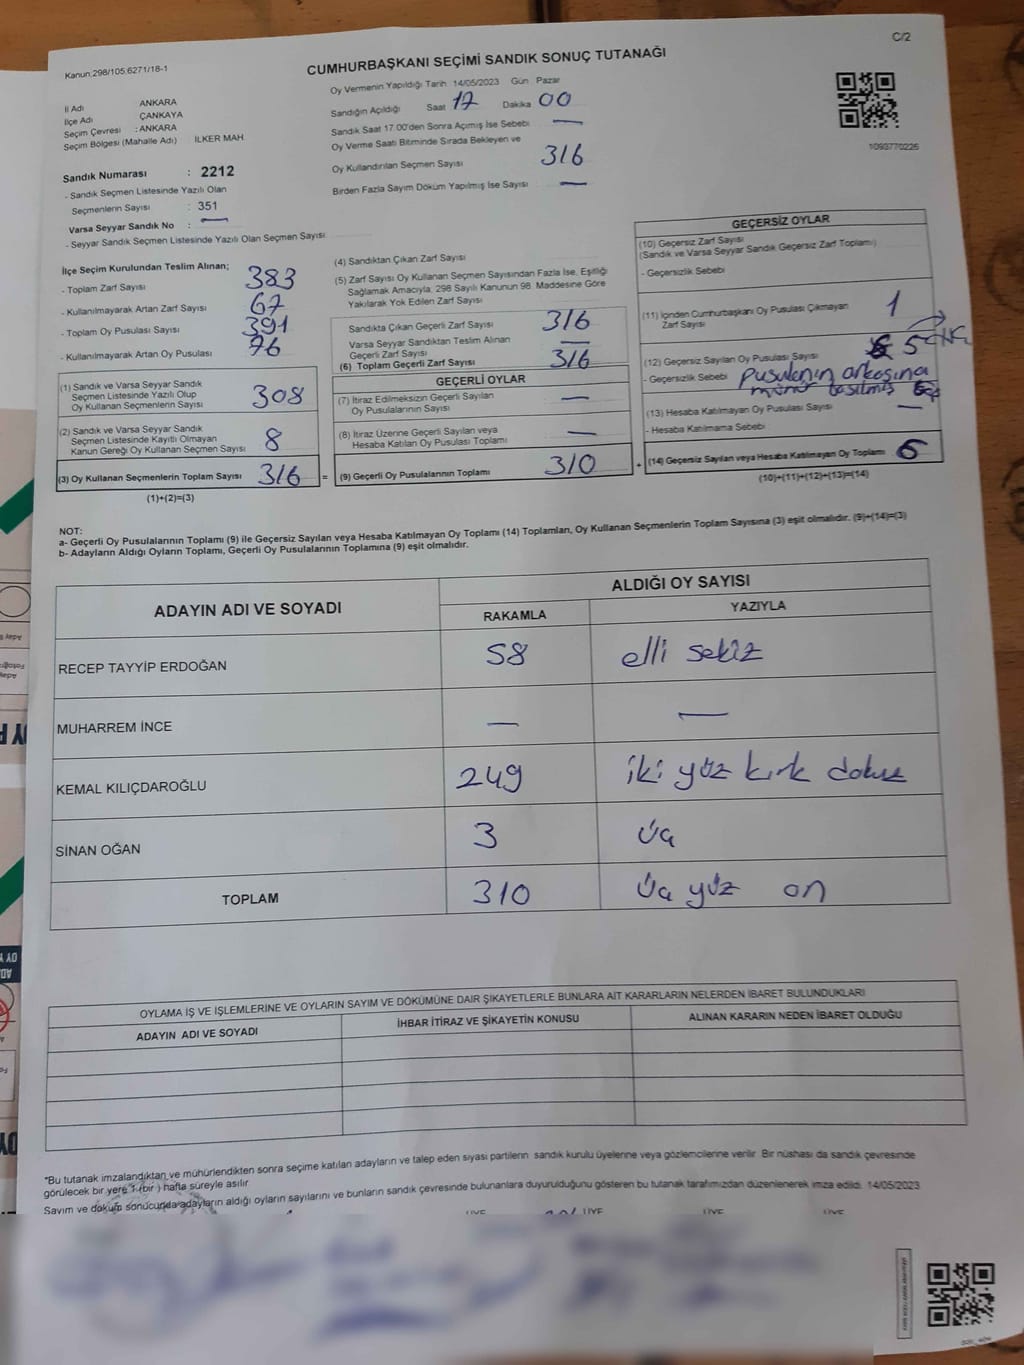 C/2
Kanun:298/105;6271/18-1
CUMHURBAŞKANI SEÇİMİ SANDIK SONUÇ TUTANAĞI
İl Adı ANKARA
İlçe Adı ÇANKAYA
Seçim Çevresi : ANKARA
Seçim Bölgesi (Mahalle Adı) İLKER MAH.
Sandık Numarası : 2212
- Sandık Seçmen Listesinde Yazılı Olan
Seçmenlerin Sayısı : 351
Varsa Seyyar Sandık No : —
- Seyyar Sandık Seçmen Listesinde Yazılı Olan Seçmen Sayısı
Oy Vermenin Yapıldığı Tarih 14/05/2023 Gün Pazar
Sandığın Açıldığı Saat 17 Dakika 00
Sandık Saat 17.00'den Sonra Açımış İse Sebebi —
Oy Verme Saati Bitiminde Sırada Bekleyen ve
Oy Kullandırılan Seçmen Sayısı 316
Birden Fazla Sayım Döküm Yapılmış İse Sayısı —
1093770226
İlçe Seçim Kurulundan Teslim Alınan;
- Toplam Zarf Sayısı 383
- Kullanılmayarak Artan Zarf Sayısı 67
- Toplam Oy Pusulası Sayısı 391
- Kullanılmayarak Artan Oy Pusulası 76
(1) Sandık ve Varsa Seyyar Sandık
Seçmen Listesinde Yazılı Olup
Oy Kullanan Seçmenlerin Sayısı 308
(2) Sandık ve Varsa Seyyar Sandık
Seçmen Listesinde Kayıtlı Olmayan
Kanun Gereği Oy Kullanan Seçmen Sayısı 8
(3) Oy Kullanan Seçmenlerin Toplam Sayısı 316 =
(1)+(2)=(3)
(4) Sandıktan Çıkan Zarf Sayısı
(5) Zarf Sayısı Oy Kullanan Seçmen Sayısından Fazla İse, Eşitliği
Sağlamak Amacıyla, 298 Sayılı Kanunun 98. Maddesine Göre
Yakılarak Yok Edilen Zarf Sayısı
Sandıkta Çıkan Geçerli Zarf Sayısı 316
Varsa Seyyar Sandıktan Teslim Alınan
Geçerli Zarf Sayısı —
(6) Toplam Geçerli Zarf Sayısı 316
GEÇERLİ OYLAR
(7) İtiraz Edilmeksizin Geçerli Sayılan
Oy Pusulalarının Sayısı —
(8) İtiraz Üzerine Geçerli Sayılan ve
Hesaba Katılan Oy Pusulası Toplamı —
(9) Geçerli Oy Pusulalarının Toplamı 310 +
GEÇERSİZ OYLAR
(10) Geçersiz Zarf Sayısı
(Sandık ve Varsa Seyyar Sandık Geçersiz Zarf Toplamı)
- Geçersizlik Sebebi
(11) İçinden Cumhurbaşkanı Oy Pusulası Çıkmayan
Zarf Sayısı 1
(12) Geçersiz Sayılan Oy Pusulası Sayısı 5
- Geçersizlik Sebebi pusulanın arkasına
mühür basılmış
(13) Hesaba Katılmayan Oy Pusulası Sayısı —
- Hesaba Katılmama Sebebi
(14) Geçersiz Sayılan veya Hesaba Katılmayan Oy Toplamı 6
(10)+(11)+(12)+(13)=(14)
NOT:
a- Geçerli Oy Pusulalarının Toplamı (9) ile Geçersiz Sayılan veya Hesaba Katılmayan Oy Toplamı (14) Toplamları, Oy Kullanan Seçmenlerin Toplam Sayısına (3) eşit olmalıdır. (9)+(14)=(3)
b- Adayların Aldığı Oyların Toplamı, Geçerli Oy Pusulalarının Toplamına (9) eşit olmalıdır.
ADAYIN ADI VE SOYADI
ALDIĞI OY SAYISI
RAKAMLA YAZIYLA
RECEP TAYYİP ERDOĞAN 58 elli sekiz
MUHARREM İNCE — —
KEMAL KILIÇDAROĞLU 249 iki yüz kırk dokuz
SİNAN OĞAN 3 üç
TOPLAM 310 üç yüz on
OYLAMA İŞ VE İŞLEMLERİNE VE OYLARIN SAYIM VE DÖKÜMÜNE DAİR ŞİKAYETLERLE BUNLARA AİT KARARLARIN NELERDEN İBARET BULUNDUKLARI
ADAYIN ADI VE SOYADI İHBAR İTİRAZ VE ŞİKAYETİN KONUSU ALINAN KARARIN NEDEN İBARET OLDUĞU
*Bu tutanak imzalandıktan ve mühürlendikten sonra seçime katılan adayların ve talep eden siyasi partilerin sandık kurulu üyelerine veya gözlemcilerine verilir. Bir nüshası da sandık çevresinde
görülecek bir yere 1 (bir ) hafta süreyle asılır.
Sayım ve döküm sonucunda adayların aldığı oyların sayılarını ve bunların sandık çevresinde bulunanlara duyurulduğunu gösteren bu tutanak tarafımızdan düzenlenerek imza edildi. 14/05/2023
ÜYE ÜYE ÜYE ÜYE